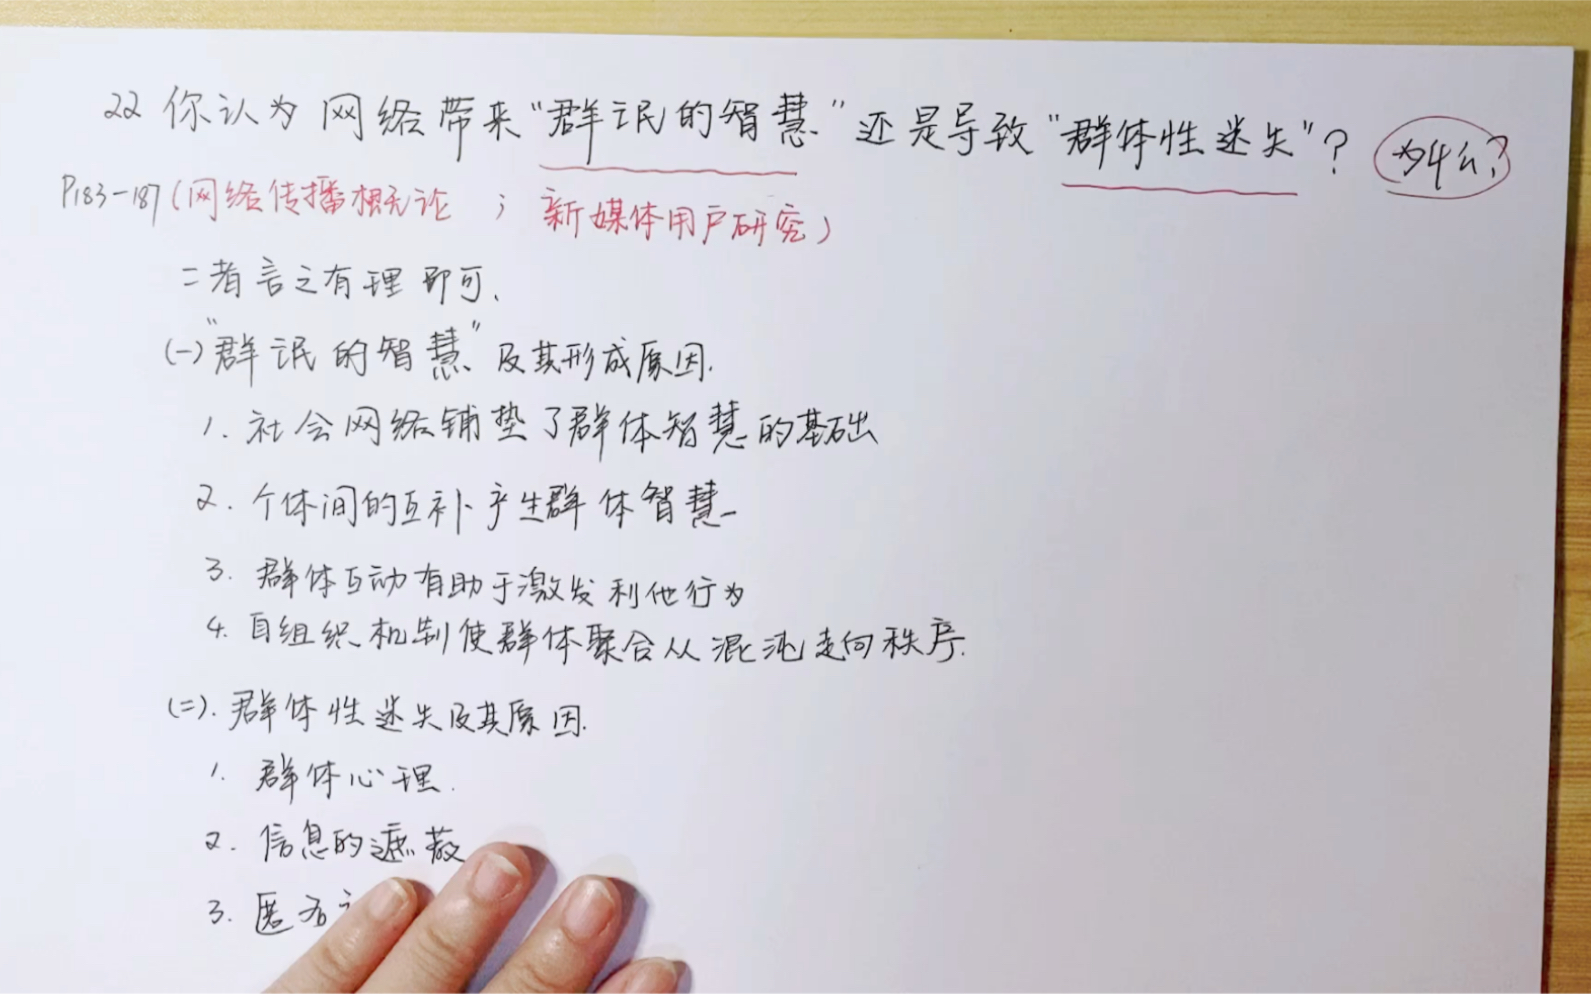 22 你认为网络带来“群氓的智慧”还是导致“群体性迷失”？为什么？
P183-187(网络传播概论；新媒体用户研究)
二者言之有理即可.
(一)“群氓的智慧”及其形成原因.
1. 社会网络铺垫了群体智慧的基础
2. 个体间的互补产生群体智慧
3. 群体互动有助于激发利他行为
4. 自组织机制使群体聚合从混沌走向秩序.
(二). 群体性迷失及其原因.
1. 群体心理.
2. 信息的遮蔽
3. 匿名